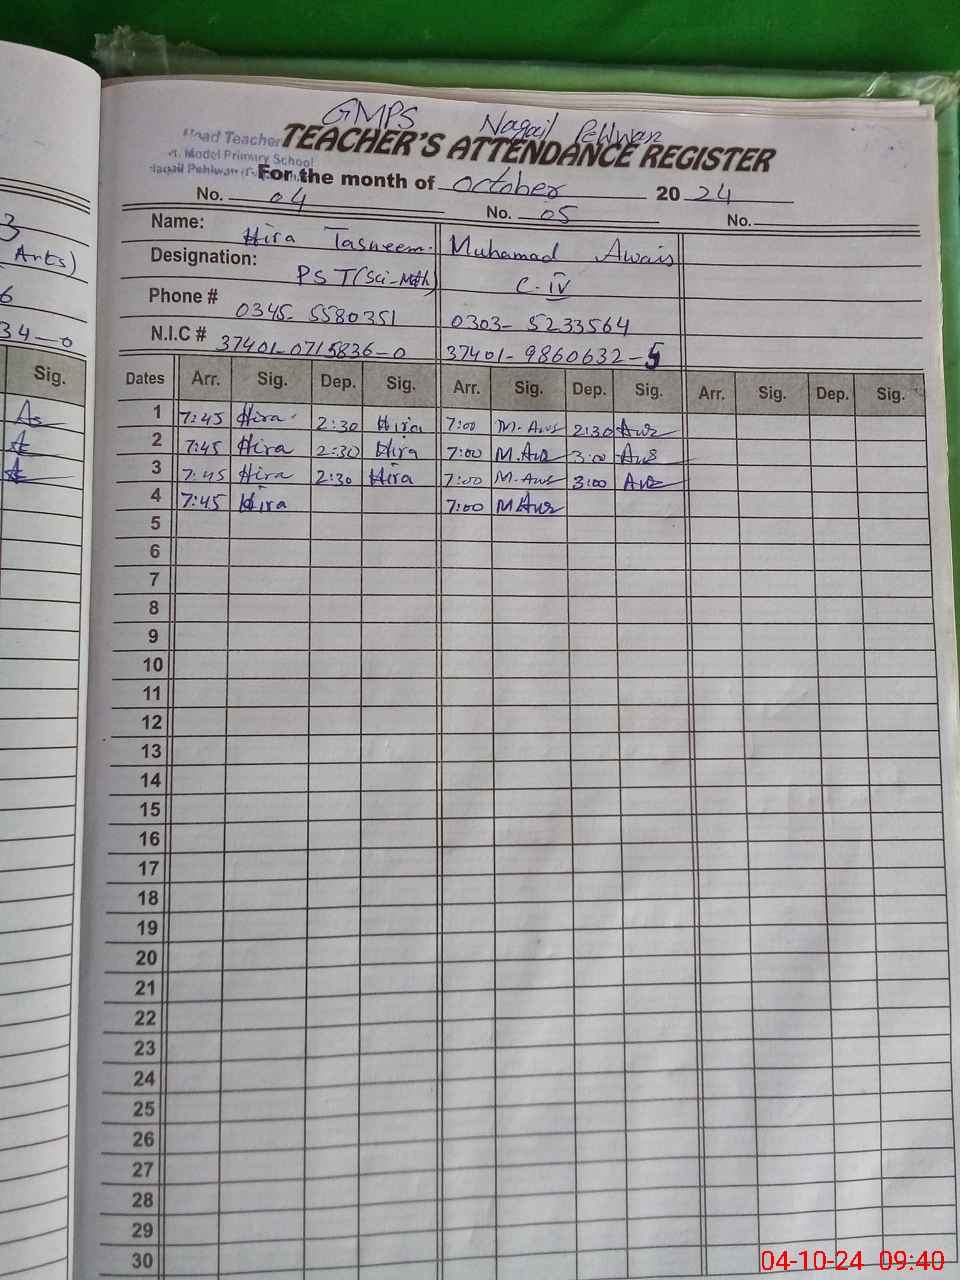 GMPS Nagail Pehlwan
Head Teacher
Model Primary School
TEACHER'S ATTENDANCE REGISTER
For the month of October 2024
No. 04 No. 05 No.
Name: Hira Tasneem. Muhamad Awais
Designation: PST(Sci-Math) C-IV
Phone # 0345-5580351 0303-5233564
N.I.C # 37401-0715836-0 37401-9860632-5
3
Arts)
6
34-0
Sig.
Dates Arr. Sig. Dep. Sig. Arr. Sig. Dep. Sig. Arr. Sig. Dep. Sig.
1 7:45 Hira 2:30 Hira 7:00 M.Aws 2:30 Aws
2 7:45 Hira 2:30 Hira 7:00 M.Aws 3:00 Aws
3 7:45 Hira 2:30 Hira 7:00 M.Aws 3:00 Aws
4 7:45 Hira 7:00 M Aws
5
6
7
8
9
10
11
12
13
14
15
16
17
18
19
20
21
22
23
24
25
26
27
28
29
30
04-10-24 09:40